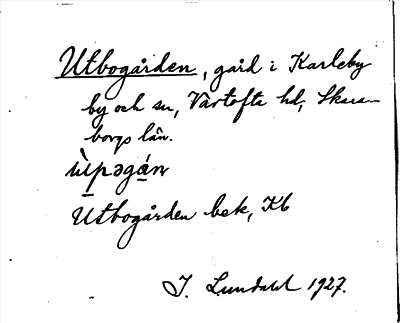 Utbogården, gård i Karleby
by och sn, Vartofta hd, Skara-
borgs län.
ùpəgán
Utbogården bek, Kb
J. Lundahl 1927.